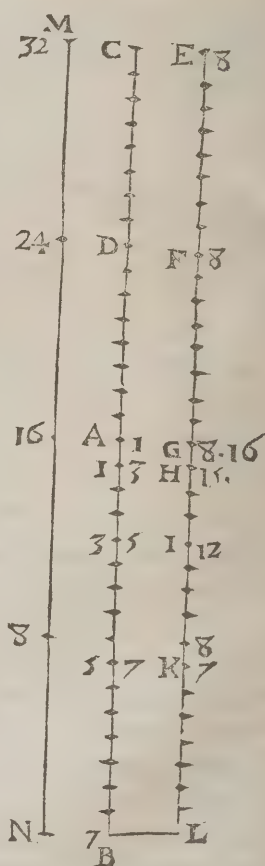 M
32 C E 8
24 D F 8
16 A 1 G 8.16
1 3 H 15.
3 5 I 12
8 8
5 7 K 7
N 7 L
B